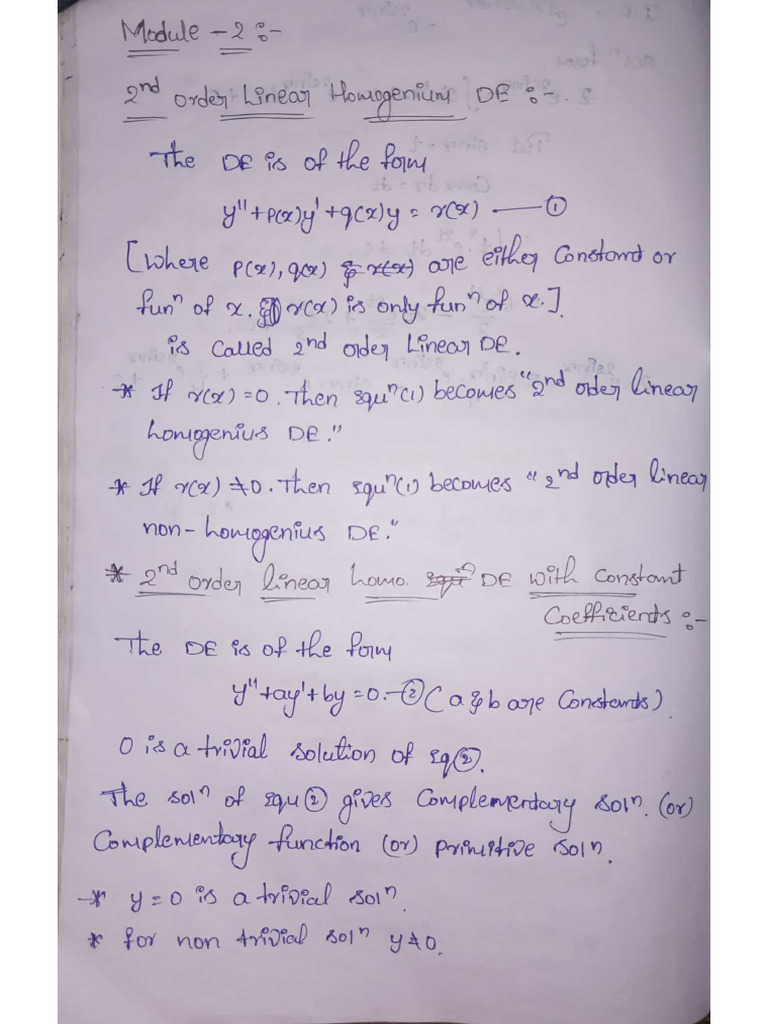 Module - 2 :-
2nd order Linear Homogenium DE :-
The DE is of the form
y'' + p(x)y' + q(x)y = r(x) — ①
[Where p(x), q(x) & r(x) are either Constant or
funⁿ of x. r(x) is only funⁿ of x.]
is Called 2nd order Linear DE.
* If r(x) = 0. Then equⁿ(1) becomes "2nd order linear
homogenius DE."
* If r(x) ≠ 0. Then equⁿ(1) becomes "2nd order linear
non-homogenius DE."
* 2nd order linear homo. equⁿ DE with Constant
Coefficients :-
The DE is of the form
y'' + ay' + by = 0. - ② (a & b are Constants)
0 is a trivial solution of eq②.
The solⁿ of equ② gives Complementary solⁿ. (or)
Complementary function (or) primitive solⁿ.
* y = 0 is a trivial solⁿ.
* for non trivial solⁿ y ≠ 0.